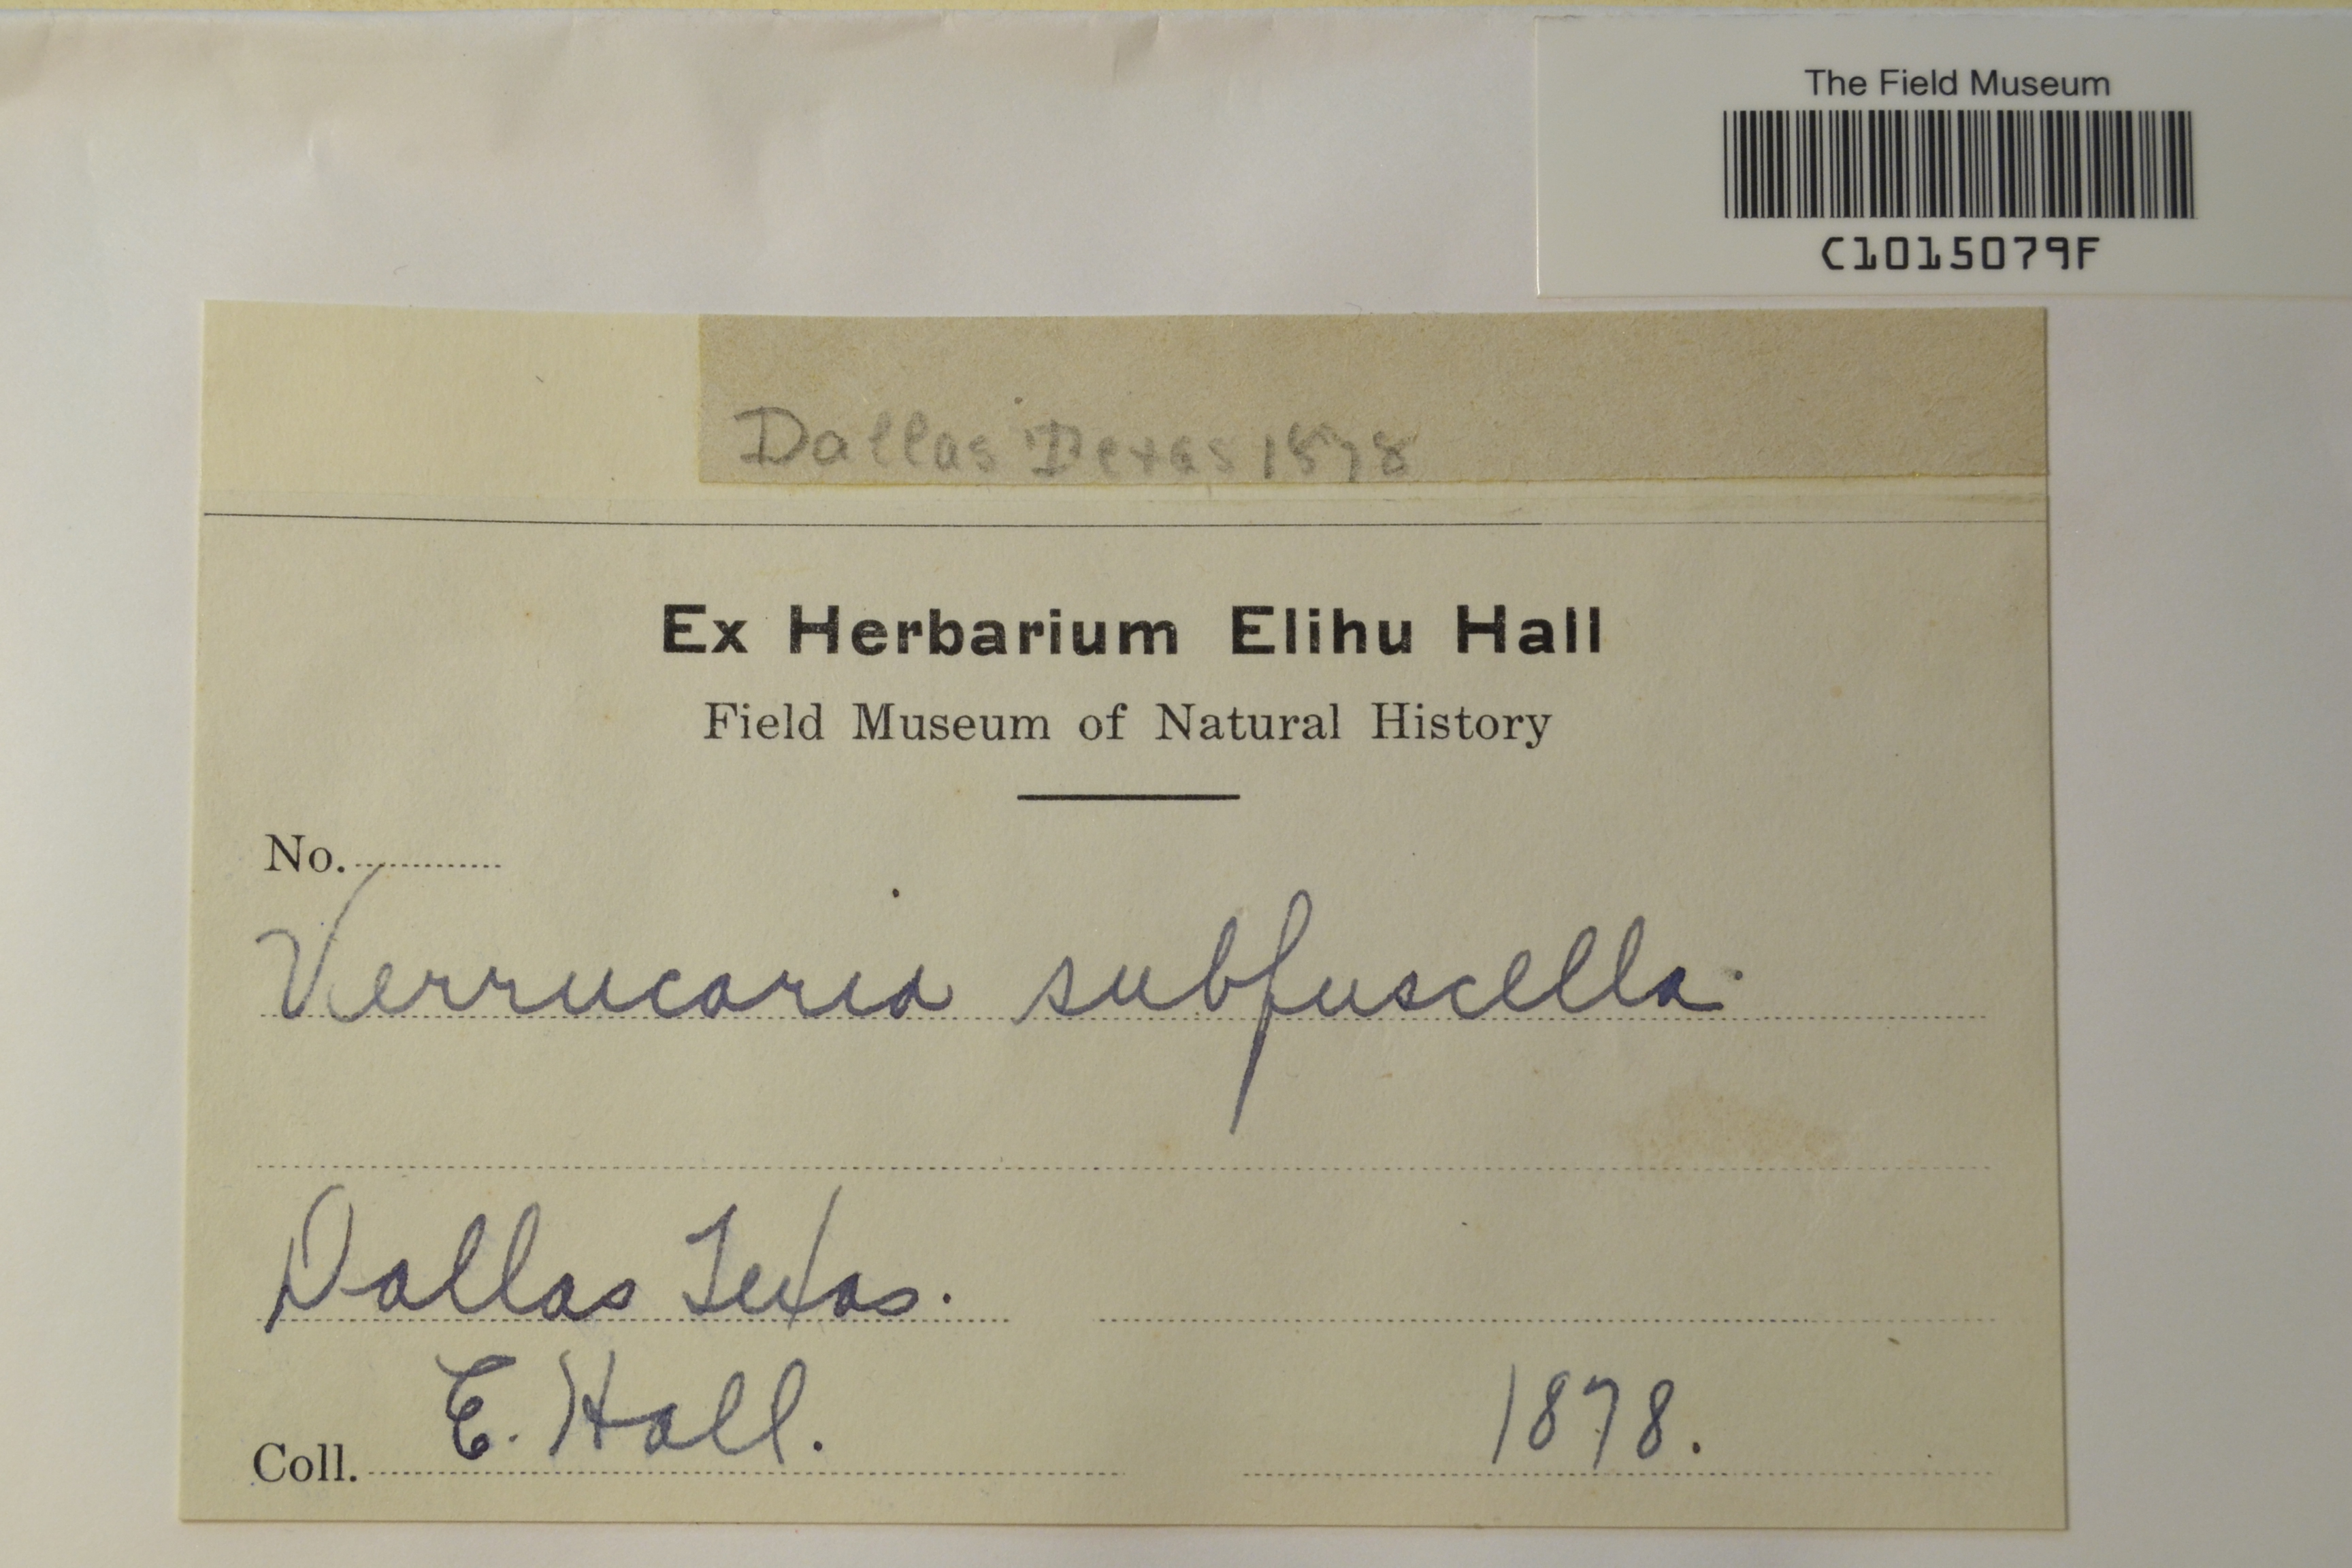 The Field Museum
C1015079F
Dallas Texas 1878
Ex Herbarium Elihu Hall
Field Museum of Natural History
No.
Verrucaria subfuscella.
Dallas Texas.
Coll. E. Hall. 1878.